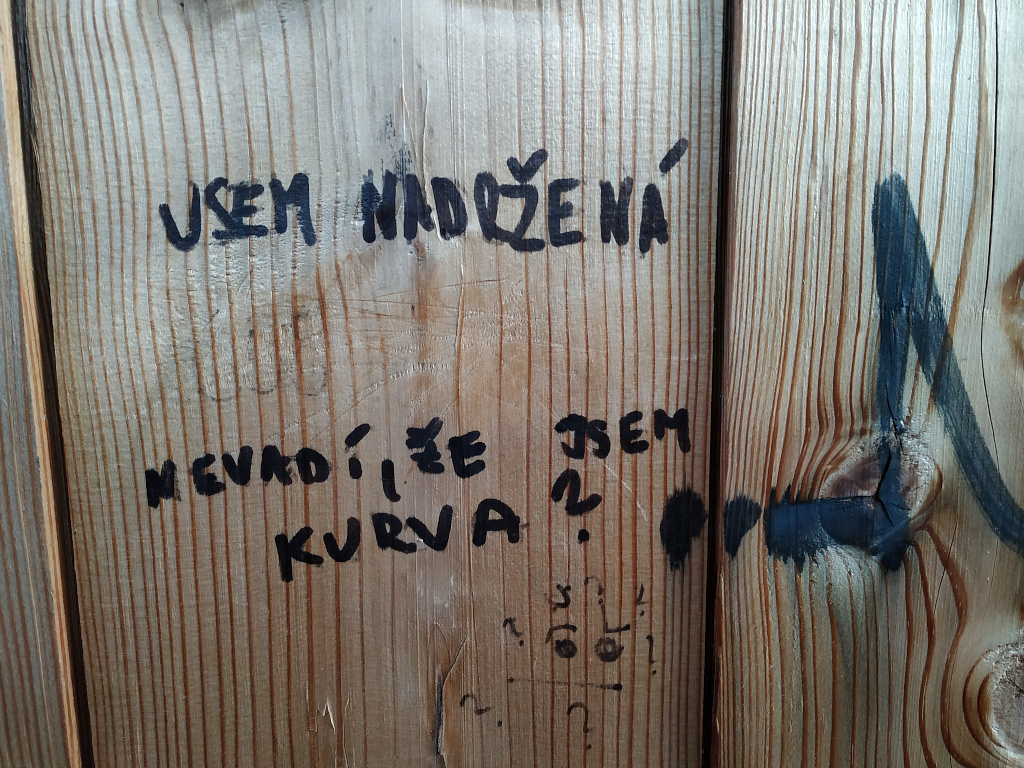 JSEM NADRŽENÁ
NEVADÍ, ŽE JSEM
KURVA?
? ?
? ?
? ?